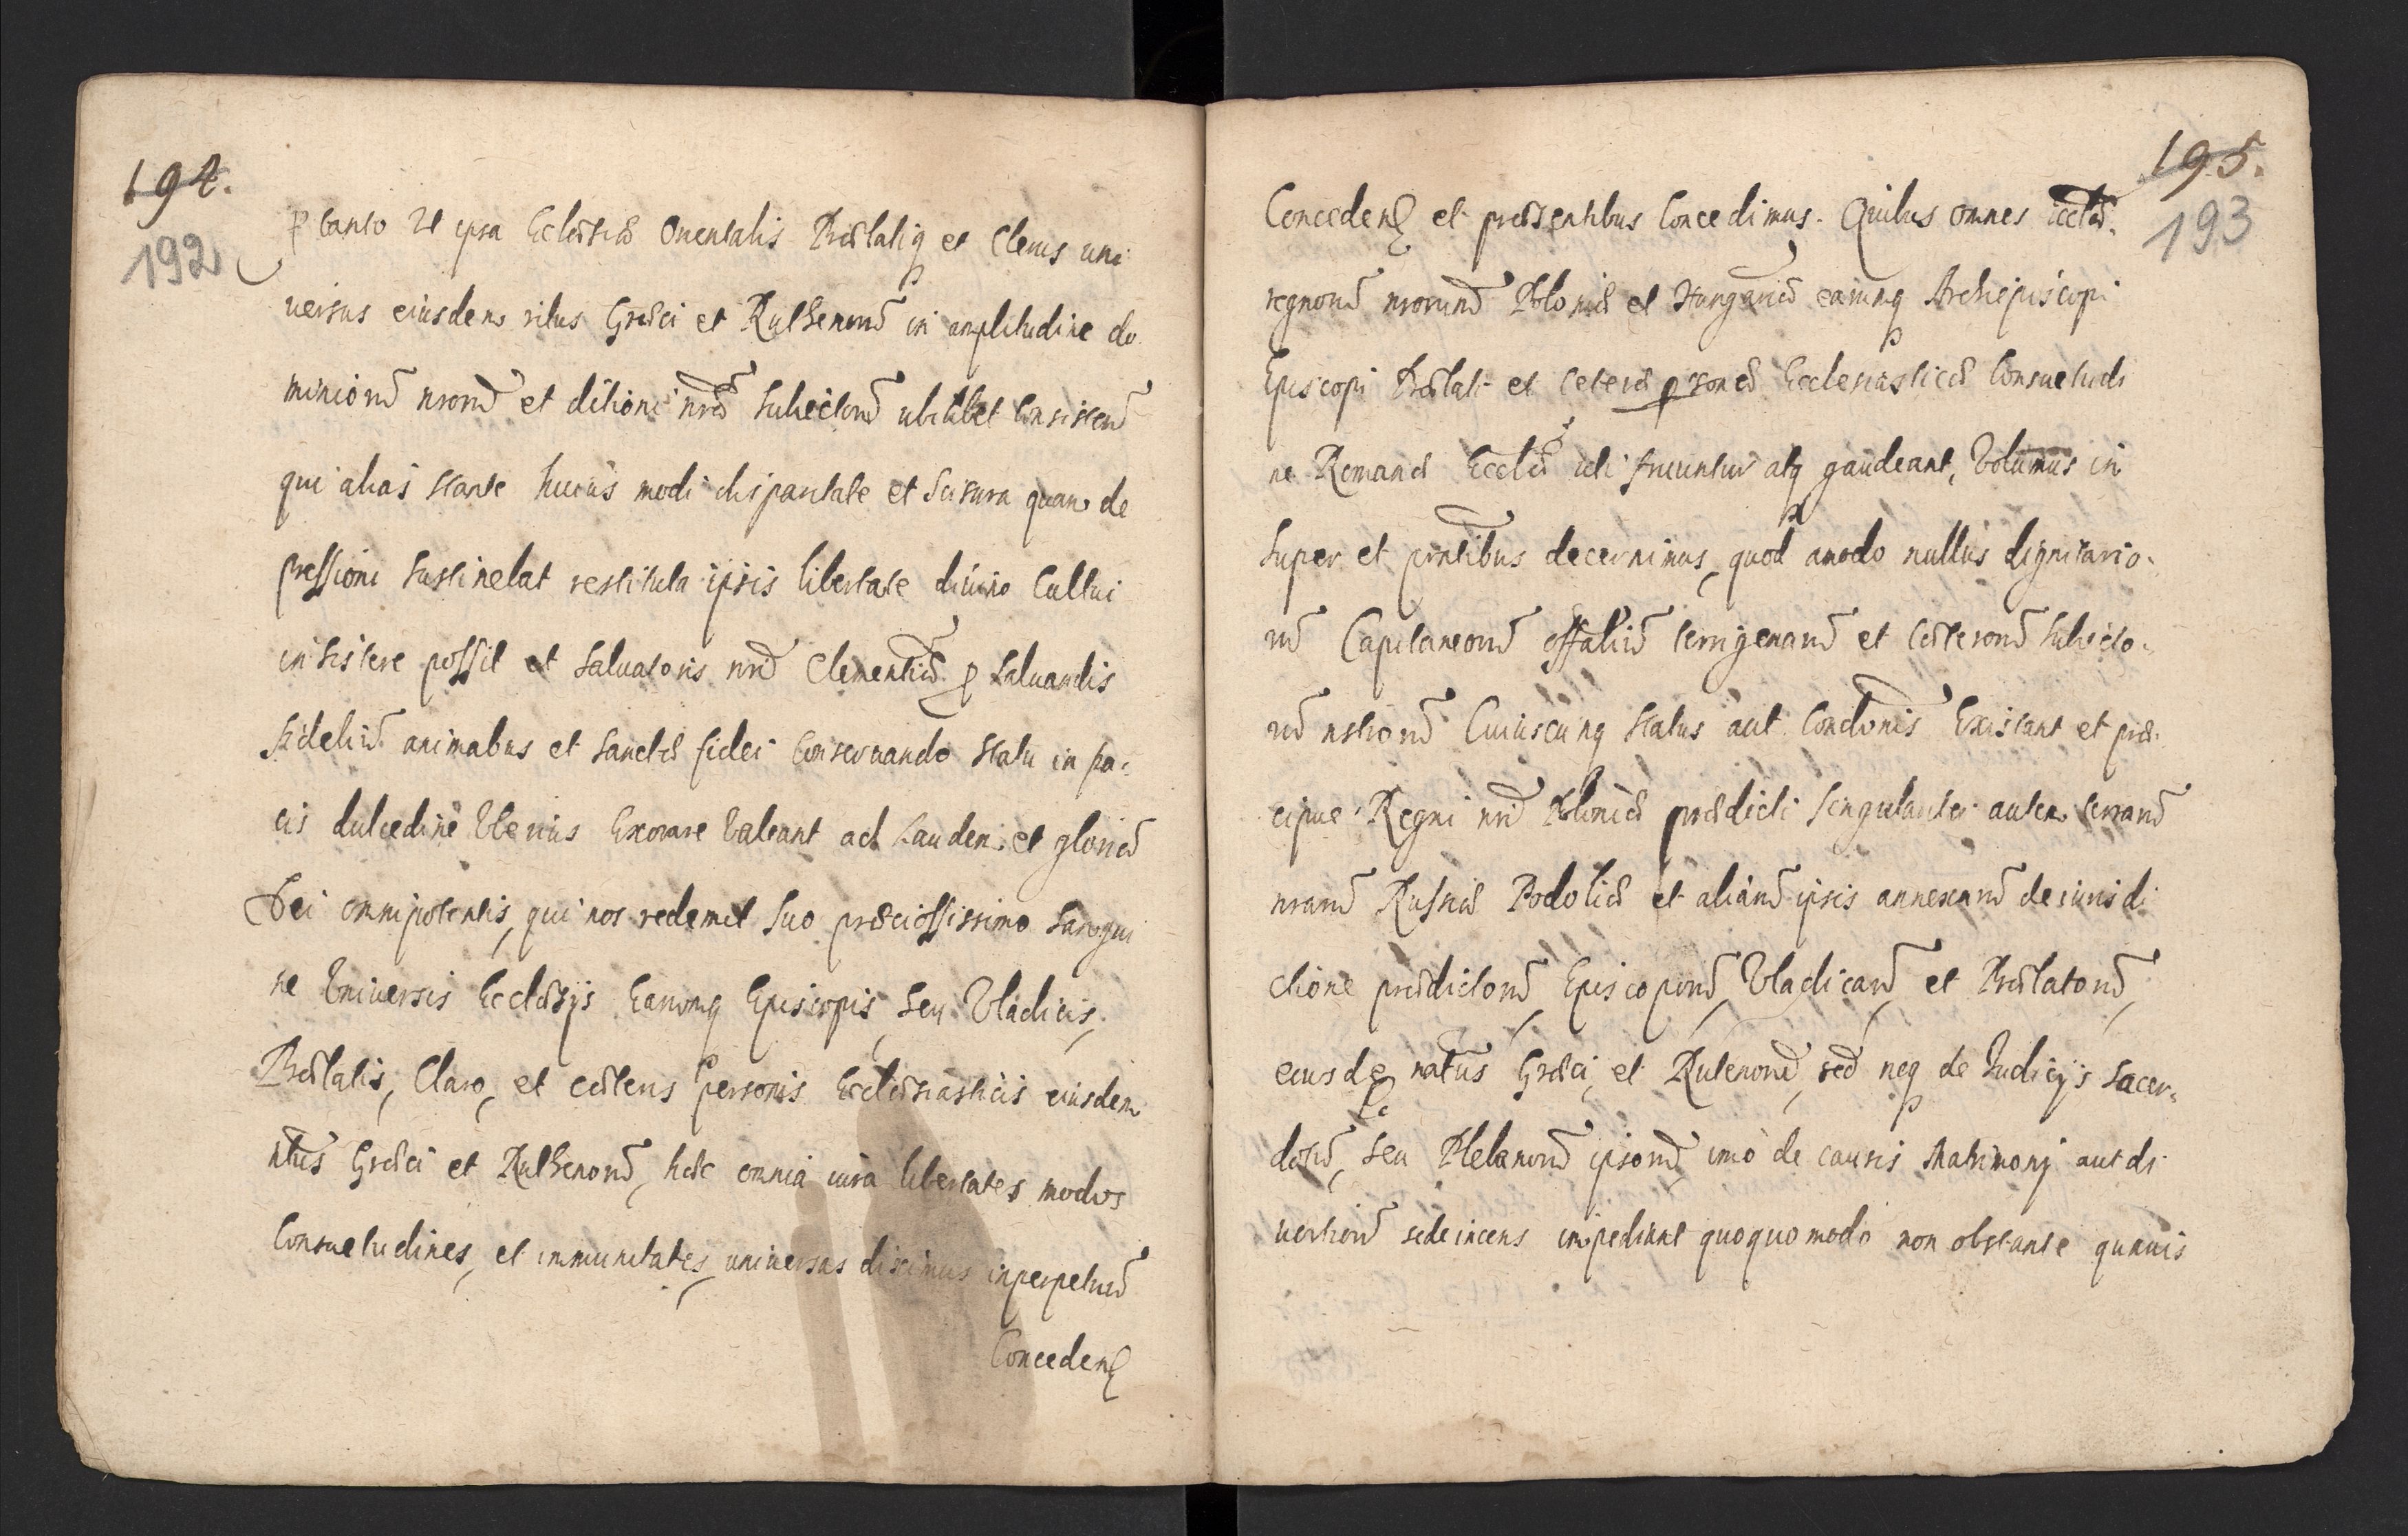 194.
192
ꝑ tanto Ut ipsa Ecclæsiæ Orientalis Prælatiq et Clerus uni
uersus eiusdem ritus Græci et Ruthenorũ in amplitudine do
miniorũ nrorũ et ditioni nræ Subiectorũ ubilibet Consisteñ
qui alias stante huius modi disparitate et Scisura quan de
pressioni sustinebat restituta ipsis libertate diuino Cultui
insistere possit et Saluatoris nri Clementiã ꝓ saluandis
fideliũ animabus et Sanctæ fidei Conseruando statu in pa-
cis dulcedine Uberius Exorare Valeant ad Laudem et gloriã
Dei omnipotentis, qui nos redemit suo præciosissimo Sangui
ne Uniuersis Ecclæsijs Earumq Episcopis, seu Vladicis,
Prælatis, Claro, et cæteris Personis Ecclæsiasticis eiusdem
ritus Græci et Ruthenorũ, hæc omnia iura libertates modos
Consuetudines, et immunitates, uniuersas diximus inperpetuũ
Concedeñ
195.
193
Concedeñ et præsentibus Concedimus. Quibus omnes Eccłæ.
regnorũ nrorum Poloniæ et Hungariæ earumq Archiepiscopi
Episcopi Prælati et Ceteræ ꝑsonæ Ecclesiasticæ Consuetudi
ne Romanæ Eccłiæ uti fruuntur atq gaudeant, Volumus in
super et pntibus decernimus, quod amodo nullus dignitario-
rũ Capitaneorũ offaliũ terrigenarũ et Cæterorũ subiecto-
rũ nstrorũ Cuiuscunq status aut Condonis Existant et præ-
cipue Regni nri Poloniæ prædicti singulariter autem terrarũ
nrarũ Russiæ Podoliæ et aliarũ ipsis annexarũ de iurisdi
ctione prædictorũ, Episcoporũ, Vladicarũ, et Prælatorũ,
eiusdẽ natus Græci, et Rutenorũ, sed neq de Iudicijs Sacer-
dotũ, seu Plebanorũ ipsorũ, imo de causis Matrimonj aut di
uortiorũ sedeincens impediant quoquo modo non obstante quauis